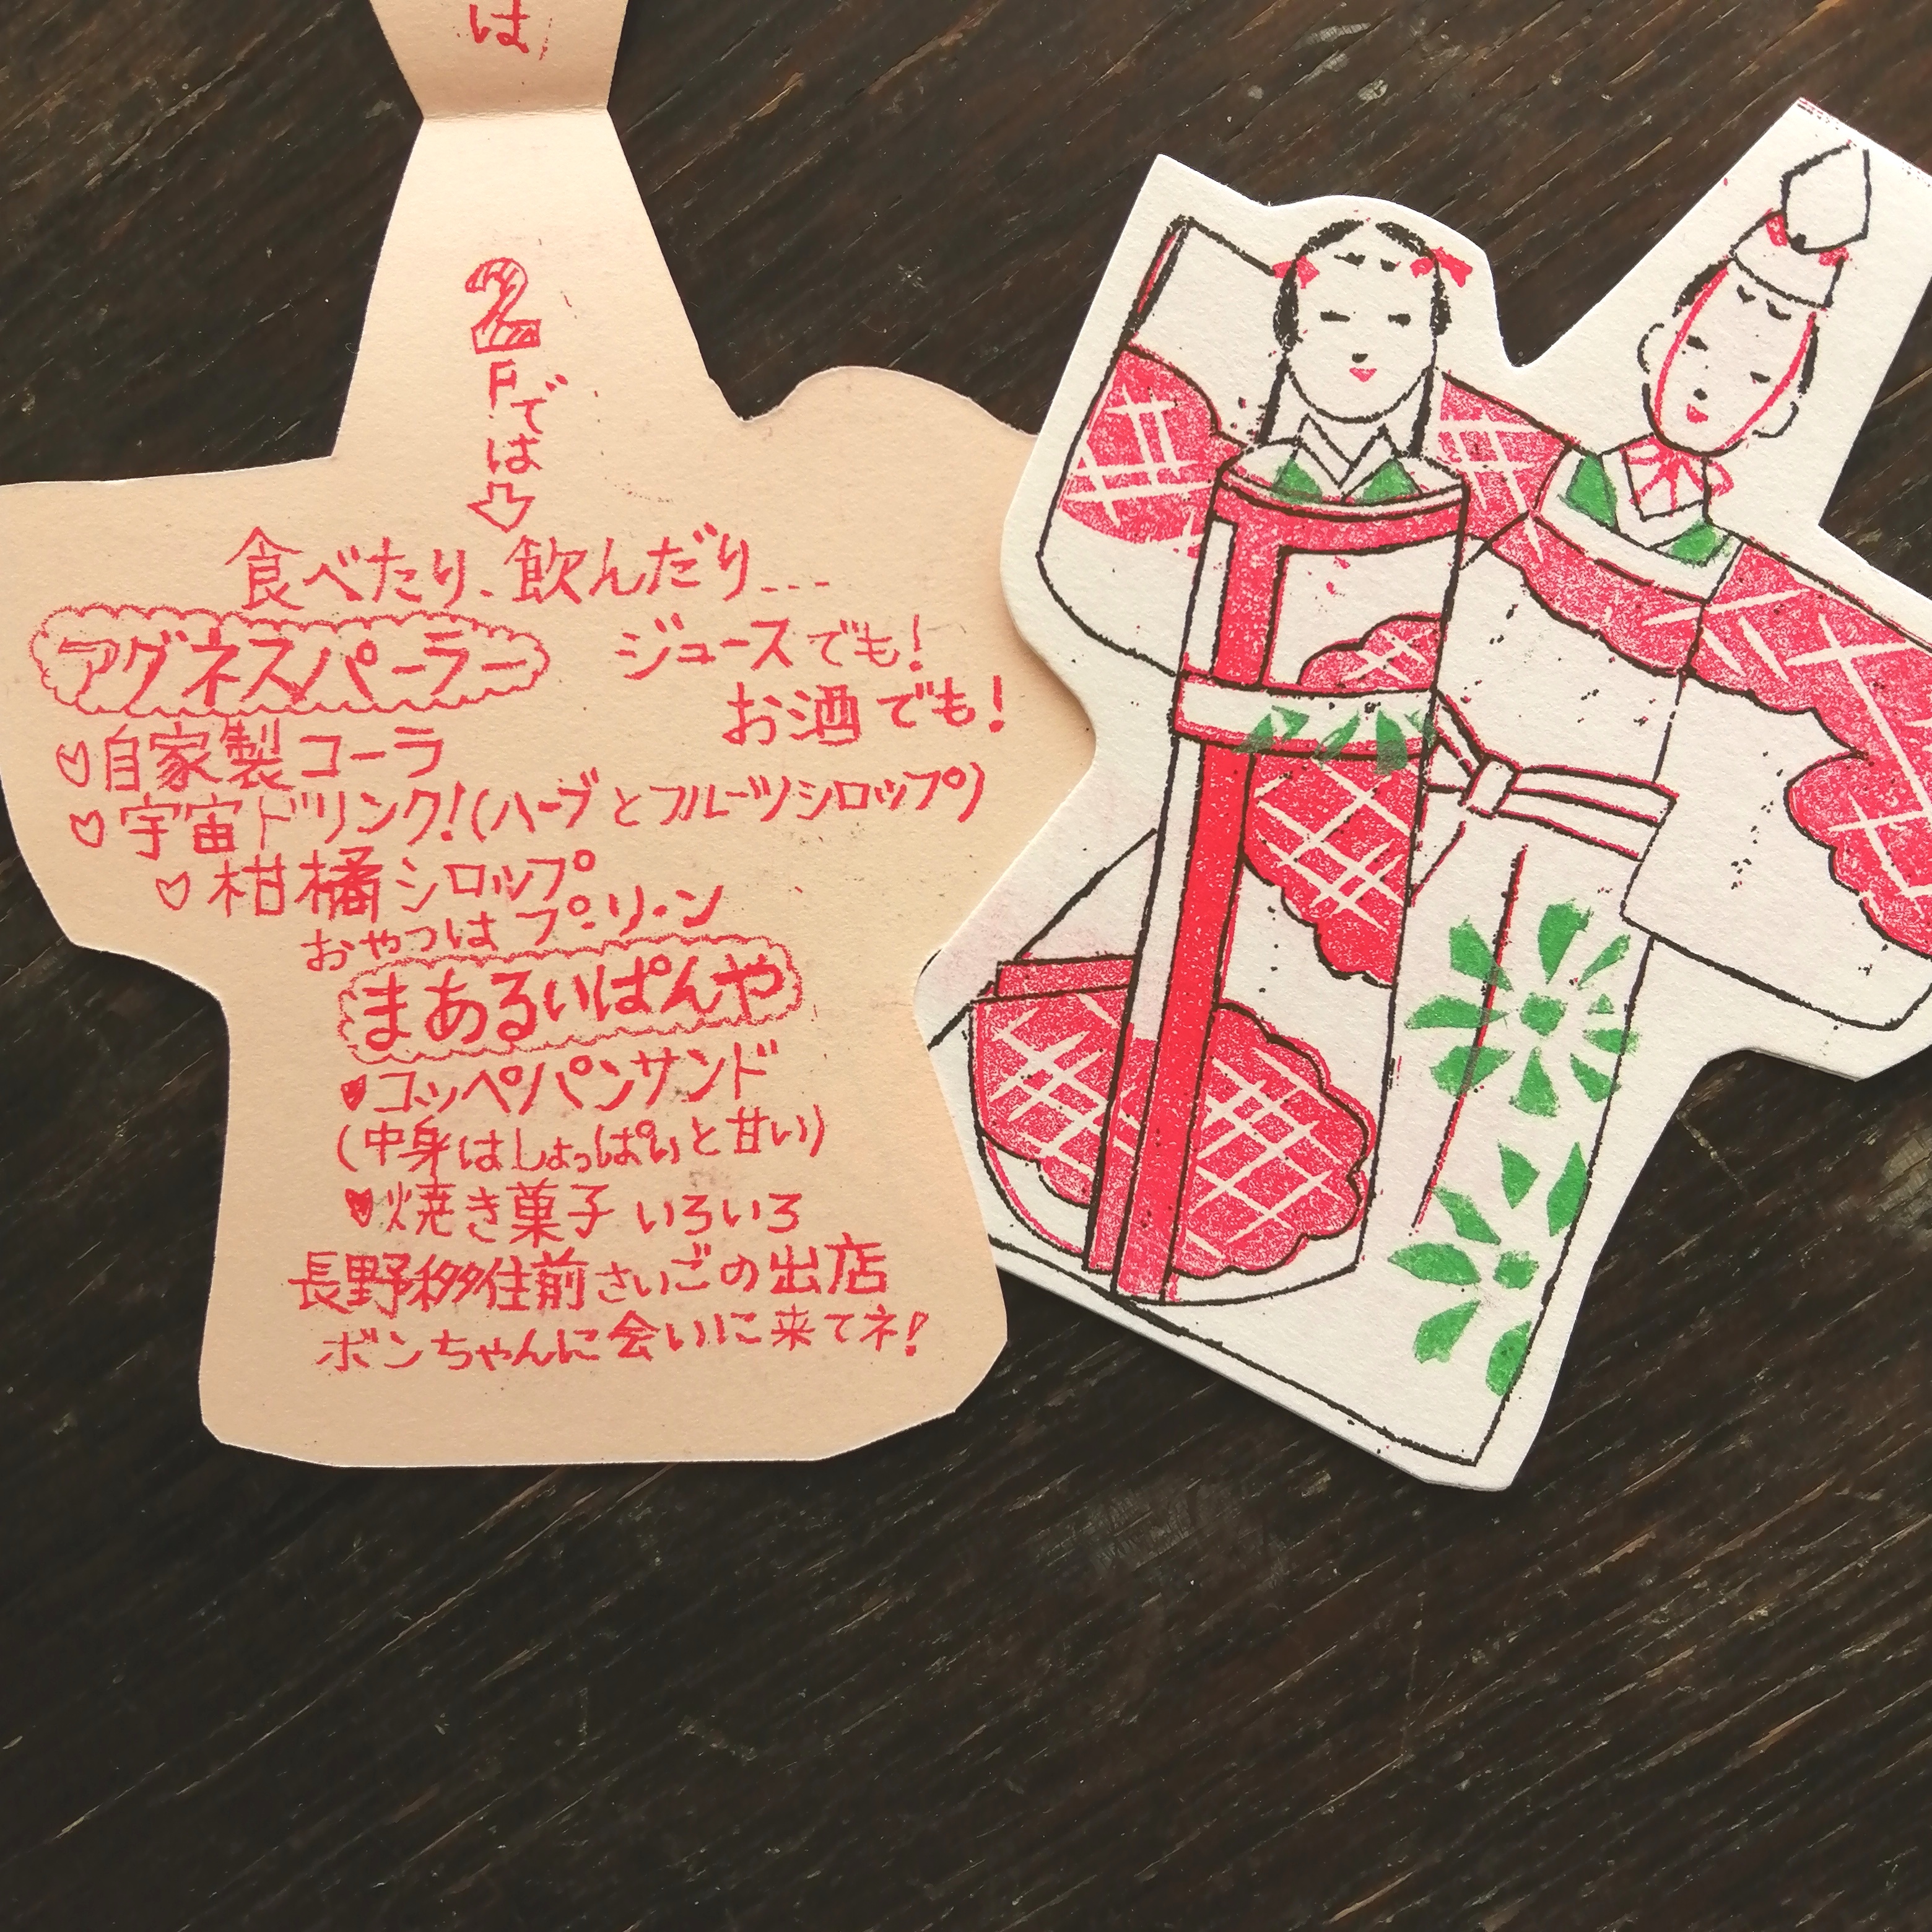 は
2Fでは
食べたり、飲んだり...
アグネスパーラー
ジュースでも!
お酒でも!
♡自家製コーラ
♡宇宙ドリンク!(ハーブとフルーツシロップ)
♡柑橘シロップ
おやつはプ・リ・ン
まあるいぱんや
♥コッペパンサンド
(中身はしょっぱいと甘い)
♥焼き菓子いろいろ
長野移住前さいごの出店
ボンちゃんに会いに来てネ!